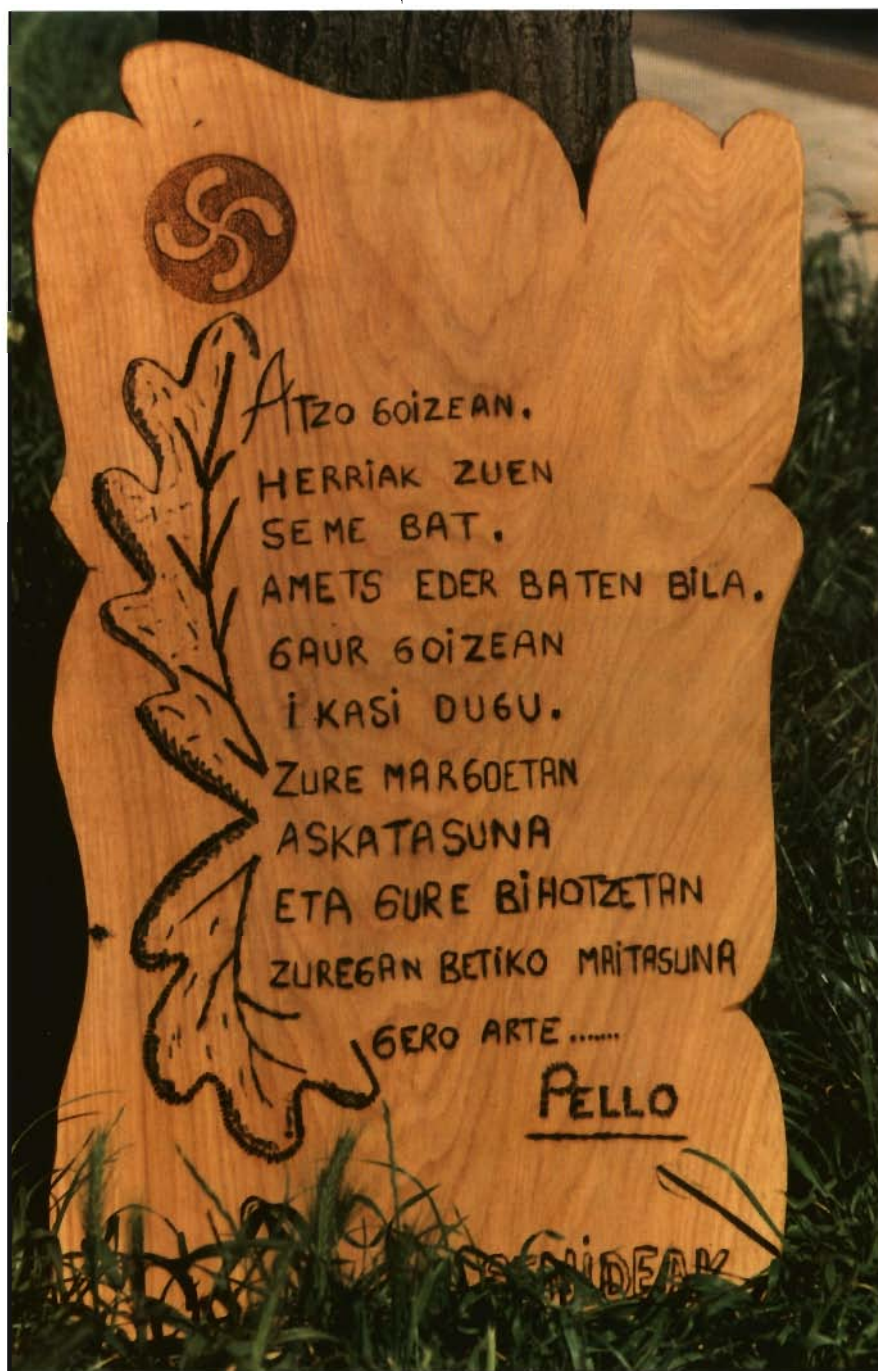 ATZO GOIZEAN.
HERRIAK ZUEN
SEME BAT.
AMETS EDER BATEN BILA.
GAUR GOIZEAN
IKASI DUGU.
ZURE MARGOETAN
ASKATASUNA
ETA GURE BIHOTZETAN
ZUREGAN BETIKO MAITASUNA
GERO ARTE.......
PELLO
SENIDEAK